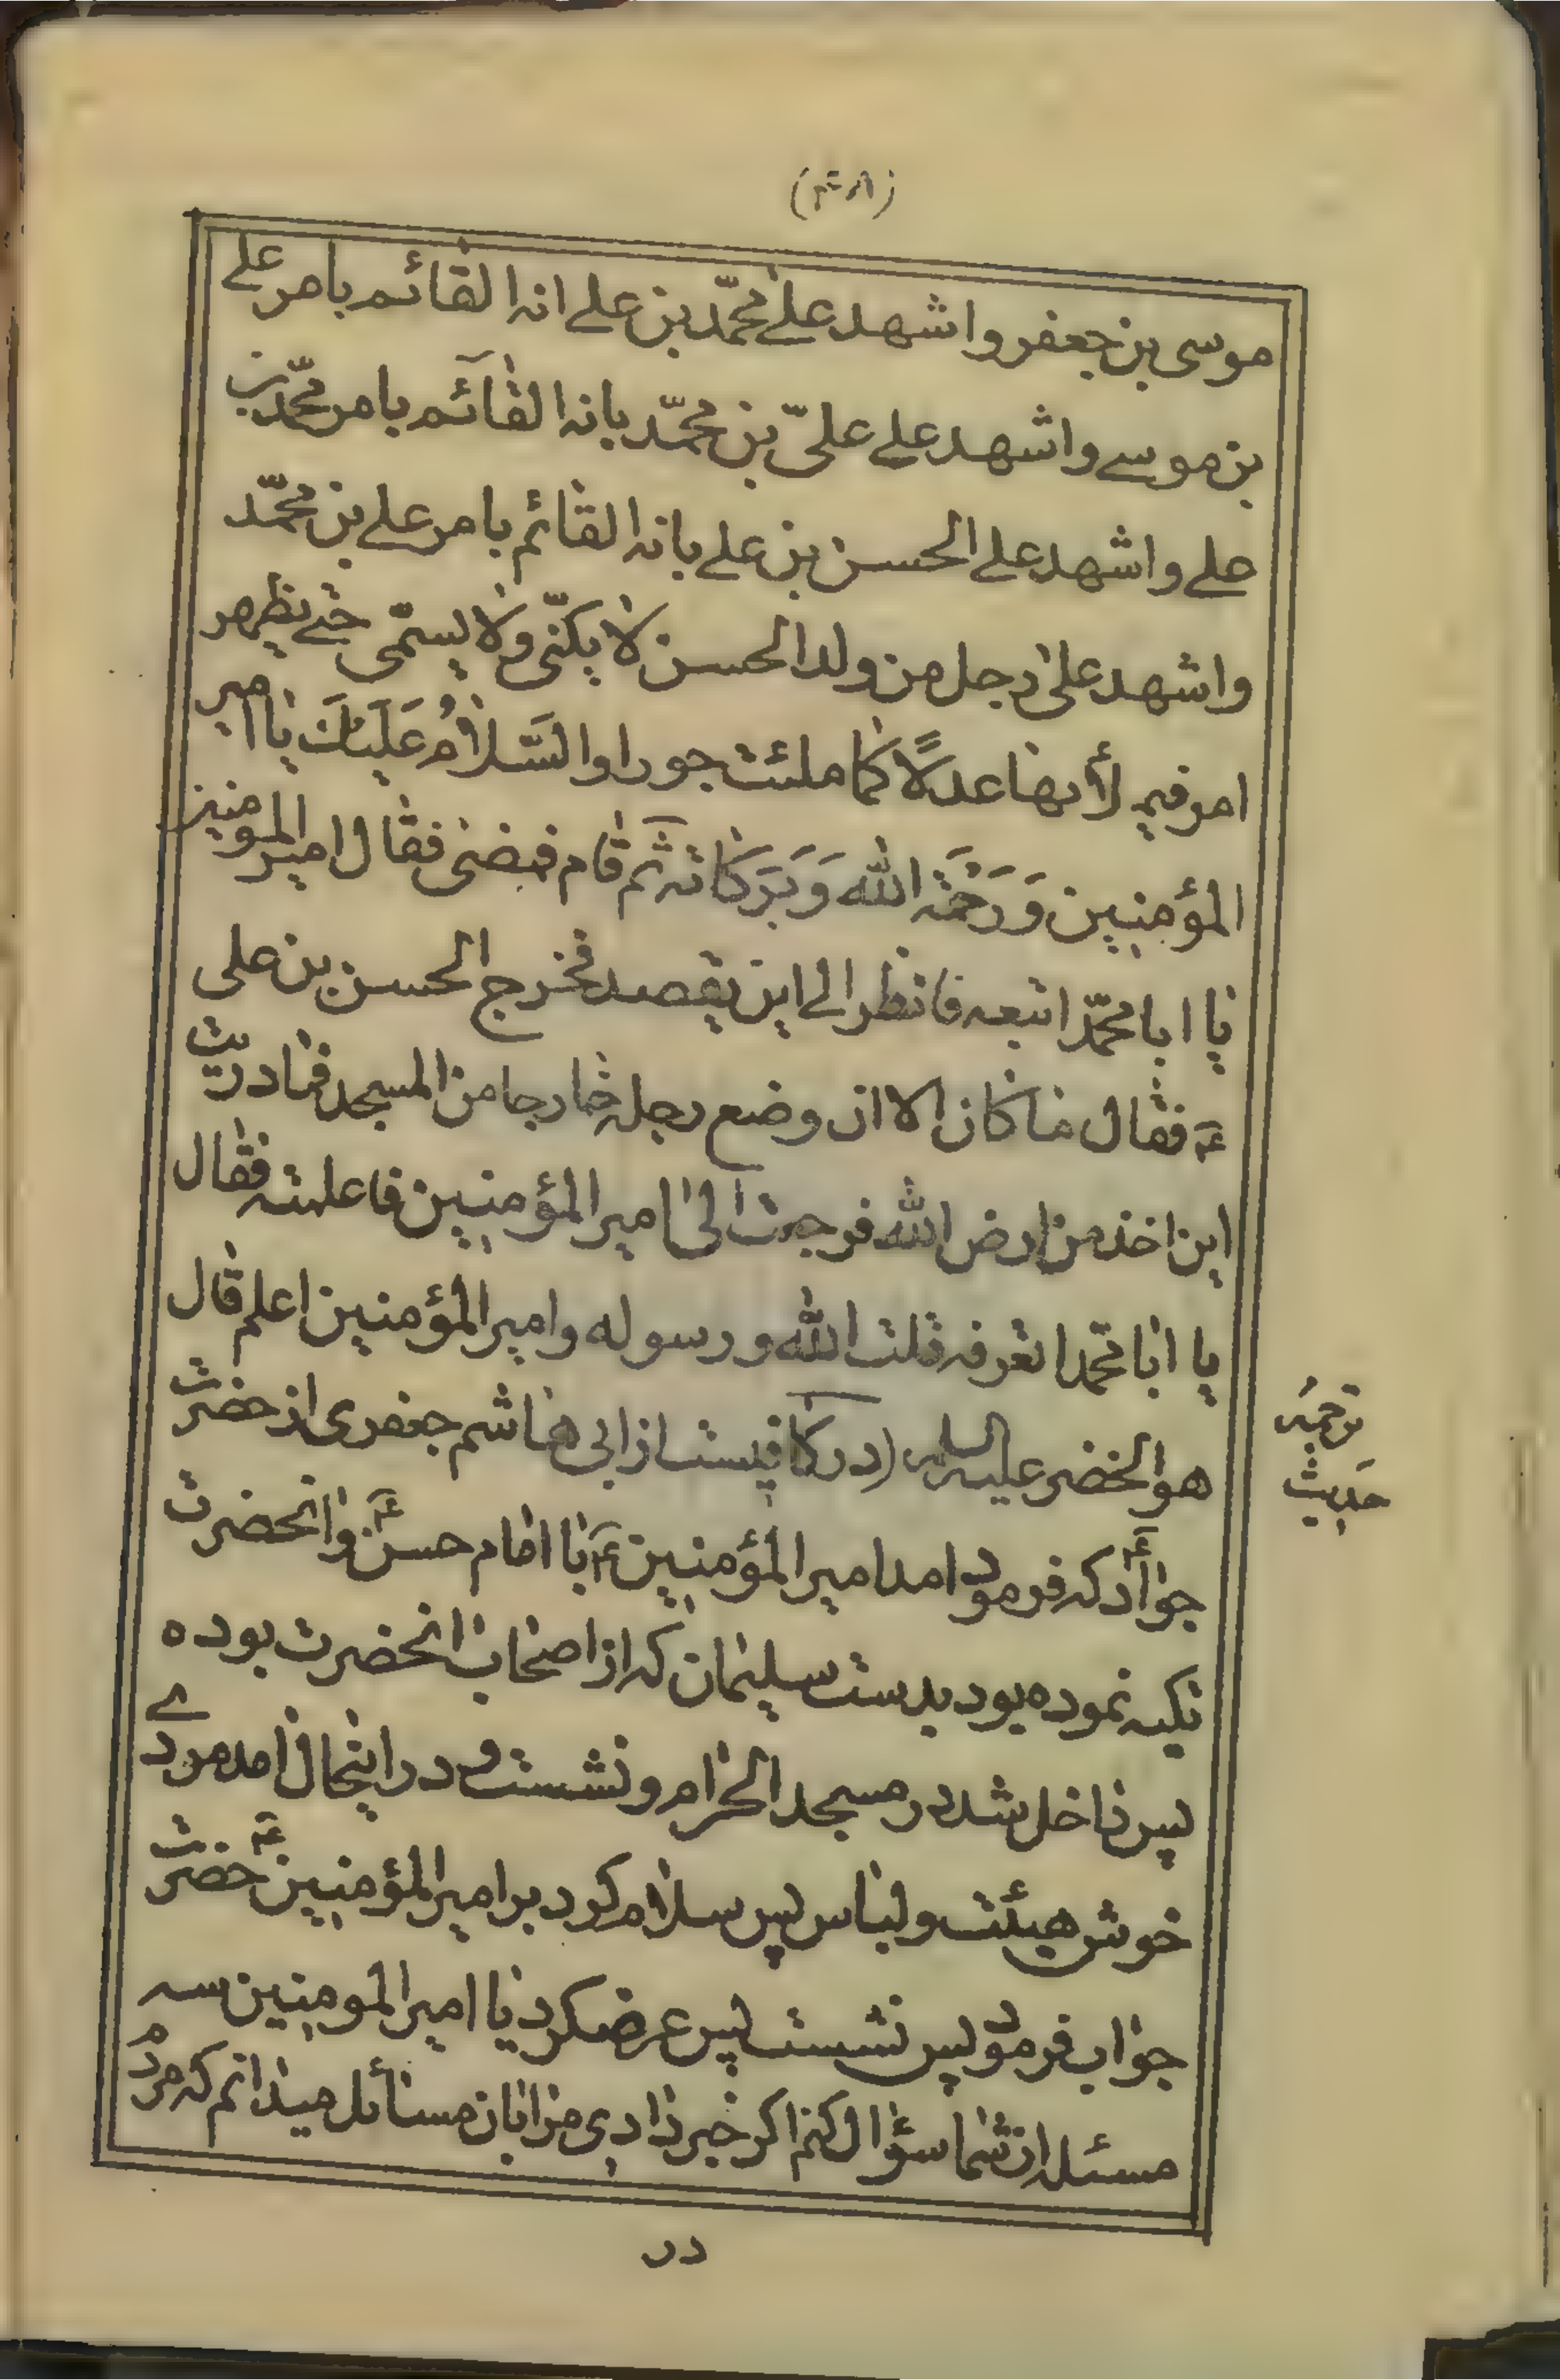 موسی بن جعفر و اشهد علی محمّد بن علے انه القائم بامر علے
بن موسے و اشهد علے علیّ بن محمّد بانه القآئم بامر محمّد بن
علے و اشهد علے الحسن بن علے بانه القائم بامر علے بن محمّد
و اشهد علی رجل من ولد الحسن لا یکنّی ولا یسمّی حتے یظهر
امر فیم لأنها عدلًا کما ملئت جورا والسَّلامُ عَلَیكَ یا امیر
المؤمنین وَ رَحْمَة الله وَ بَرَکاته ثم قام فمضی فقال امیر المومنین
یا ابا محمّد اتبعه فانظر الے این یقصد فخرج الحسن بن علی
ع فقال ما کان الا ان وضع رجله خارجا من المسجد فما دریت
این اخذ من ارض الله فرجعت الی امیر المؤمنین فاعلمته فقال
یا ابا محمّد اتعرفه قلت الله و رسوله و امیر المؤمنین اعلم قال
هو الخضر علیه السلم (در کافیست از ابی هاشم جعفری از حضرت
جوادع که فرمود امد امیر المؤمنین ع با امام حسن ع و انحضرت
تکیه نموده بود بدست سلیمان که از اصحاب انحضرت بوده
پس داخل شد در مسجد الحرام و نشست و در اینحال امد مردے
خوش هیئت و لباس پس سلام کرد بر امیر المؤمنین ع حضرت
جواب فرمود پس نشست پس عرضکرد یا امیر المومنین سه
مسئله از شما سؤال کنم اکر خبر دادی مرا بان مسائل میدانم که مردم
در
ترجمه
حدیث